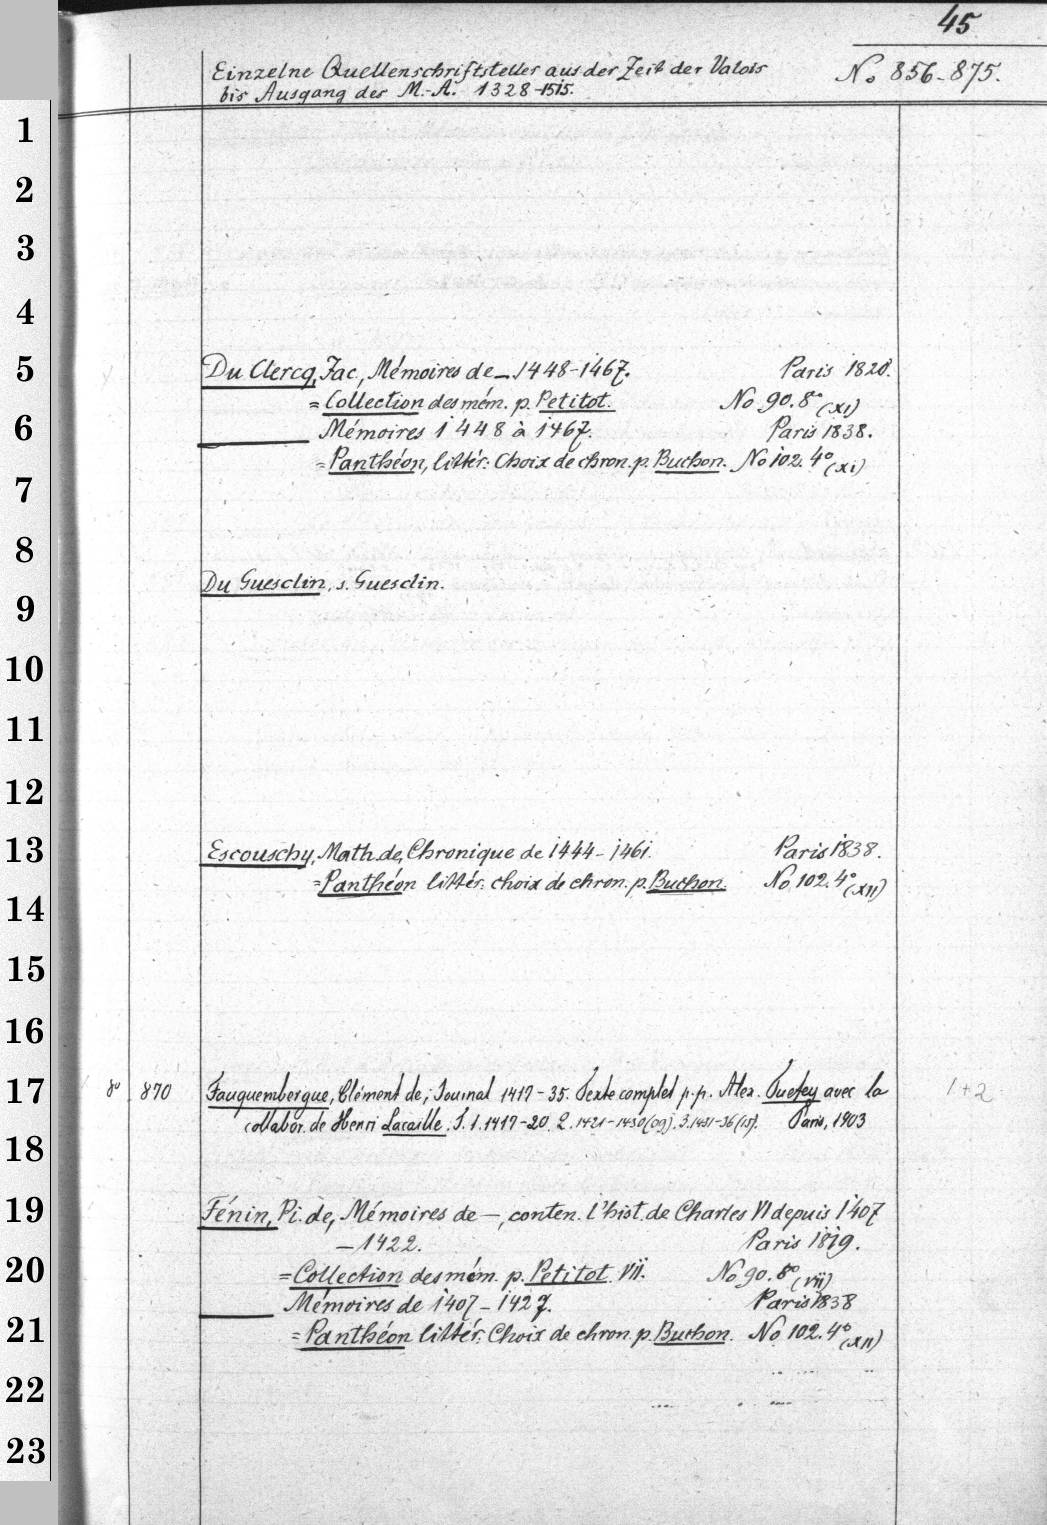 45
Einzelne Quellenschriftsteller aus der Zeit der Valois
bis Ausgang des M.-A. 1328-1515.
No 856-875.
1
2
3
4
5
6
7
8
9
10
11
12
13
14
15
16
17
18
19
20
21
22
23
Du Clercq, Jac., Mémoires de – 1448-1467. Paris 1820.
= Collection des mém. p. Petitot. No 90. 8° (XI)
Mémoires 1448 à 1467. Paris 1838.
= Panthéon, littér. Choix de chron. p. Buchon. No 102. 4° (XI)
Du Guesclin, s. Guesclin.
Escouschy, Math. de, Chronique de 1444-1461. Paris 1838.
= Panthéon littér. choix de chron. p. Buchon. No 102. 4° (XII)
8° 870 Fauquembergue, Clément de; Journal 1417-35. Texte complet p. p. Alex. Tuetey avec la 1+2
collabor. de Henri Lacaille. T. 1. 1417-20. 2. 1421-1430 (09). 3. 1431-36 (15). Paris, 1903
Fénin, Pi. de, Mémoires de –, conten. l'hist. de Charles VI depuis 1407
– 1422. Paris 1819.
= Collection des mém. p. Petitot VII. No 90. 8° (VII)
Mémoires de 1407-1427. Paris 1838
= Panthéon littér. Choix de chron. p. Buchon. No 102. 4° (XII)